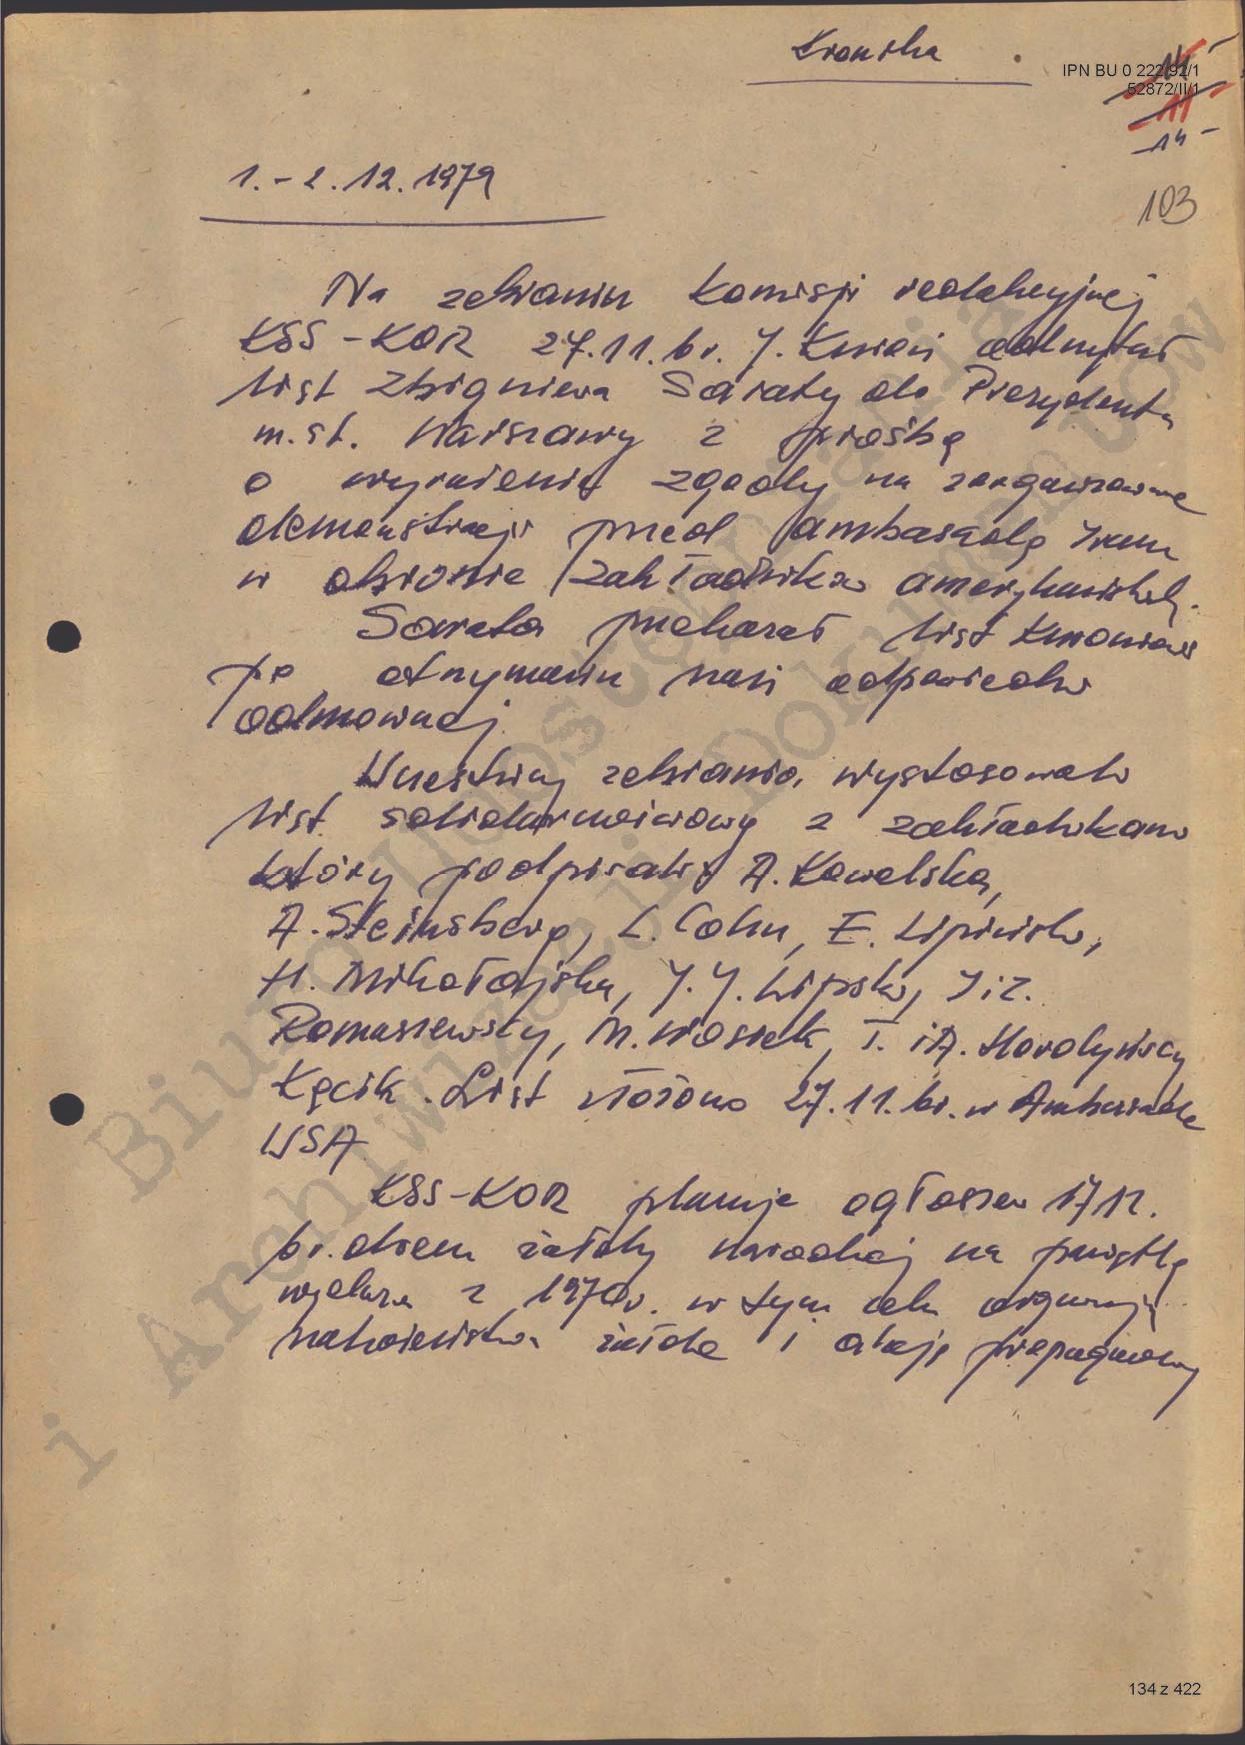 Kronika
IPN BU 0 222/92/1
52872/II/1
11
11
-14-
1.-2.12.1979
103
Na zebraniu Komisji redakcyjnej
KSS-KOR 27.11.br. J. Kuroń odczytał
list Zbigniewa Saraty do Prezydenta
m.st. Warszawy z prośbą
o wyrażenie zgody na zorganizowanie
demonstracji przed ambasadą Iranu
w obronie zakładników amerykańskich.
Sarata przekazał list Kuroniowi
po otrzymaniu nań odpowiedzi
odmownej.
Uczestnicy zebrania wystosowali
list solidarnościowy z zakładnikami
który podpisali A. Kowalska,
A. Steinsberg, L. Cohn, E. Lipiński,
H. Mikołajska, J.J. Lipski, Z i Z.
Romaszewscy, M. Wosiek, T. i A. Horodyńscy
Kęcik. List złożono 27.11.br. w Ambasadzie
USA.
KSS-KOR planuje ogłosić 17 12.
br. dniem żałoby narodowej na pamiątkę
wydarzeń z 1970 r. w tym celu organizuje
nabożeństwa żałobne i akcję propagandową
Biuro Udostępniania
i Archiwizacji Dokumentów
134 z 422